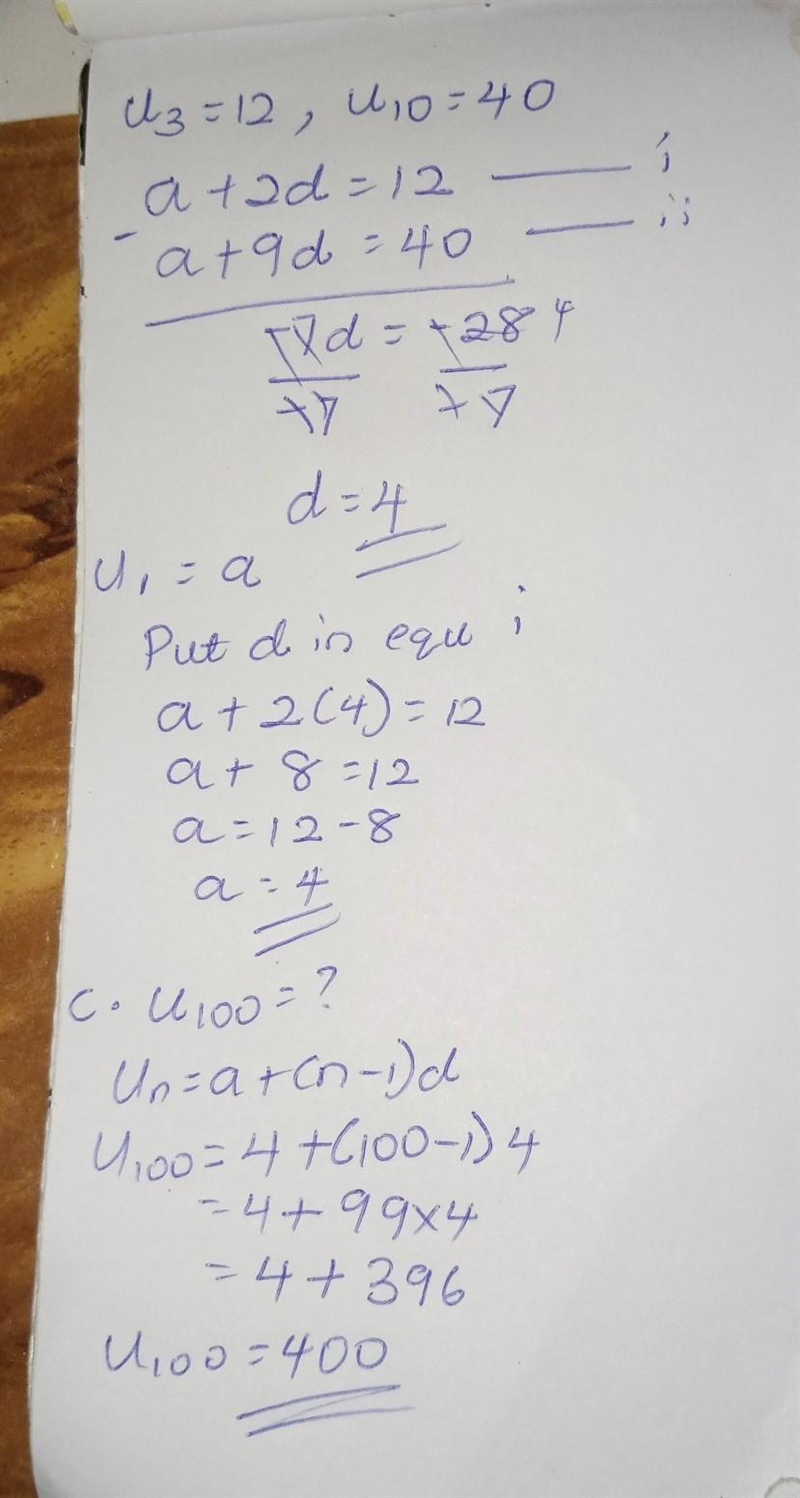 u₃ = 12, u₁₀ = 40
a + 2d = 12 —— i
- a + 9d = 40 —— ii
-7d = -28 4
-7 -7
d = 4
u₁ = a
Put d in equ i
a + 2(4) = 12
a + 8 = 12
a = 12 - 8
a = 4
C. u₁₀₀ = ?
Uₙ = a + (n - 1)d
U₁₀₀ = 4 + (100 - 1)4
= 4 + 99 × 4
= 4 + 396
U₁₀₀ = 400